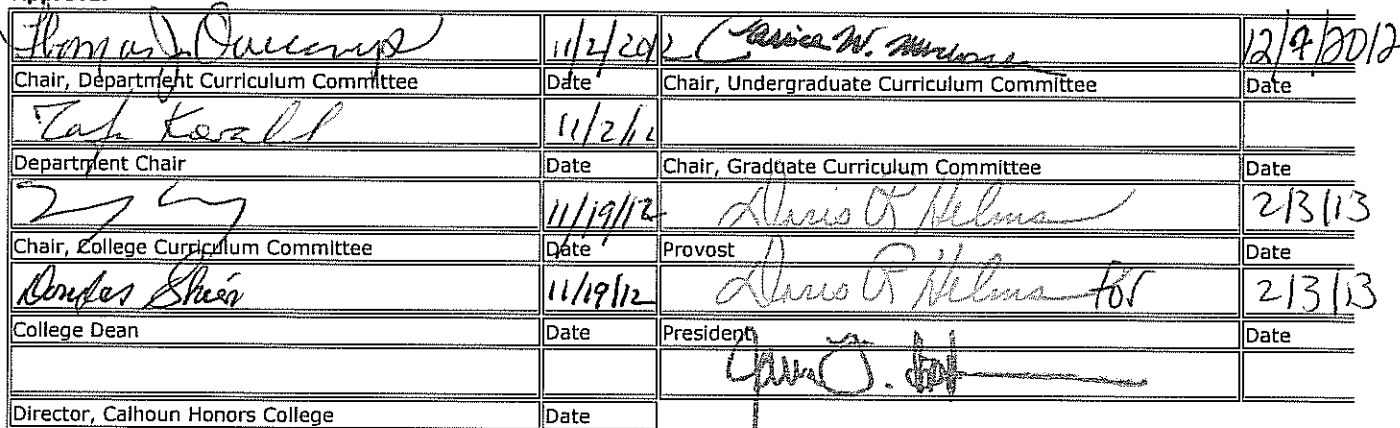 11/2/2012 12/7/2012
Chair, Department Curriculum Committee Date Chair, Undergraduate Curriculum Committee Date
11/2/12
Department Chair Date Chair, Graduate Curriculum Committee Date
11/19/12 Doris R Helms 2/3/13
Chair, College Curriculum Committee Date Provost Date
Douglas Shier 11/19/12 Doris R Helms for 2/3/13
College Dean Date President Date
Director, Calhoun Honors College Date